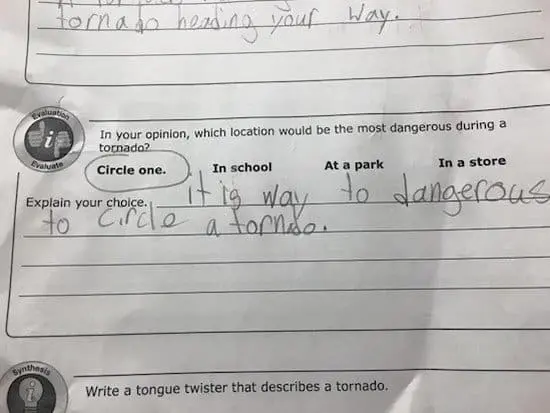 tornado heading your way.
Evaluation
In your opinion, which location would be the most dangerous during a
tornado?
Evaluate
Circle one. In school At a park In a store
Explain your choice. it is way to dangerous
to circle a tornado.
Synthesis
Write a tongue twister that describes a tornado.